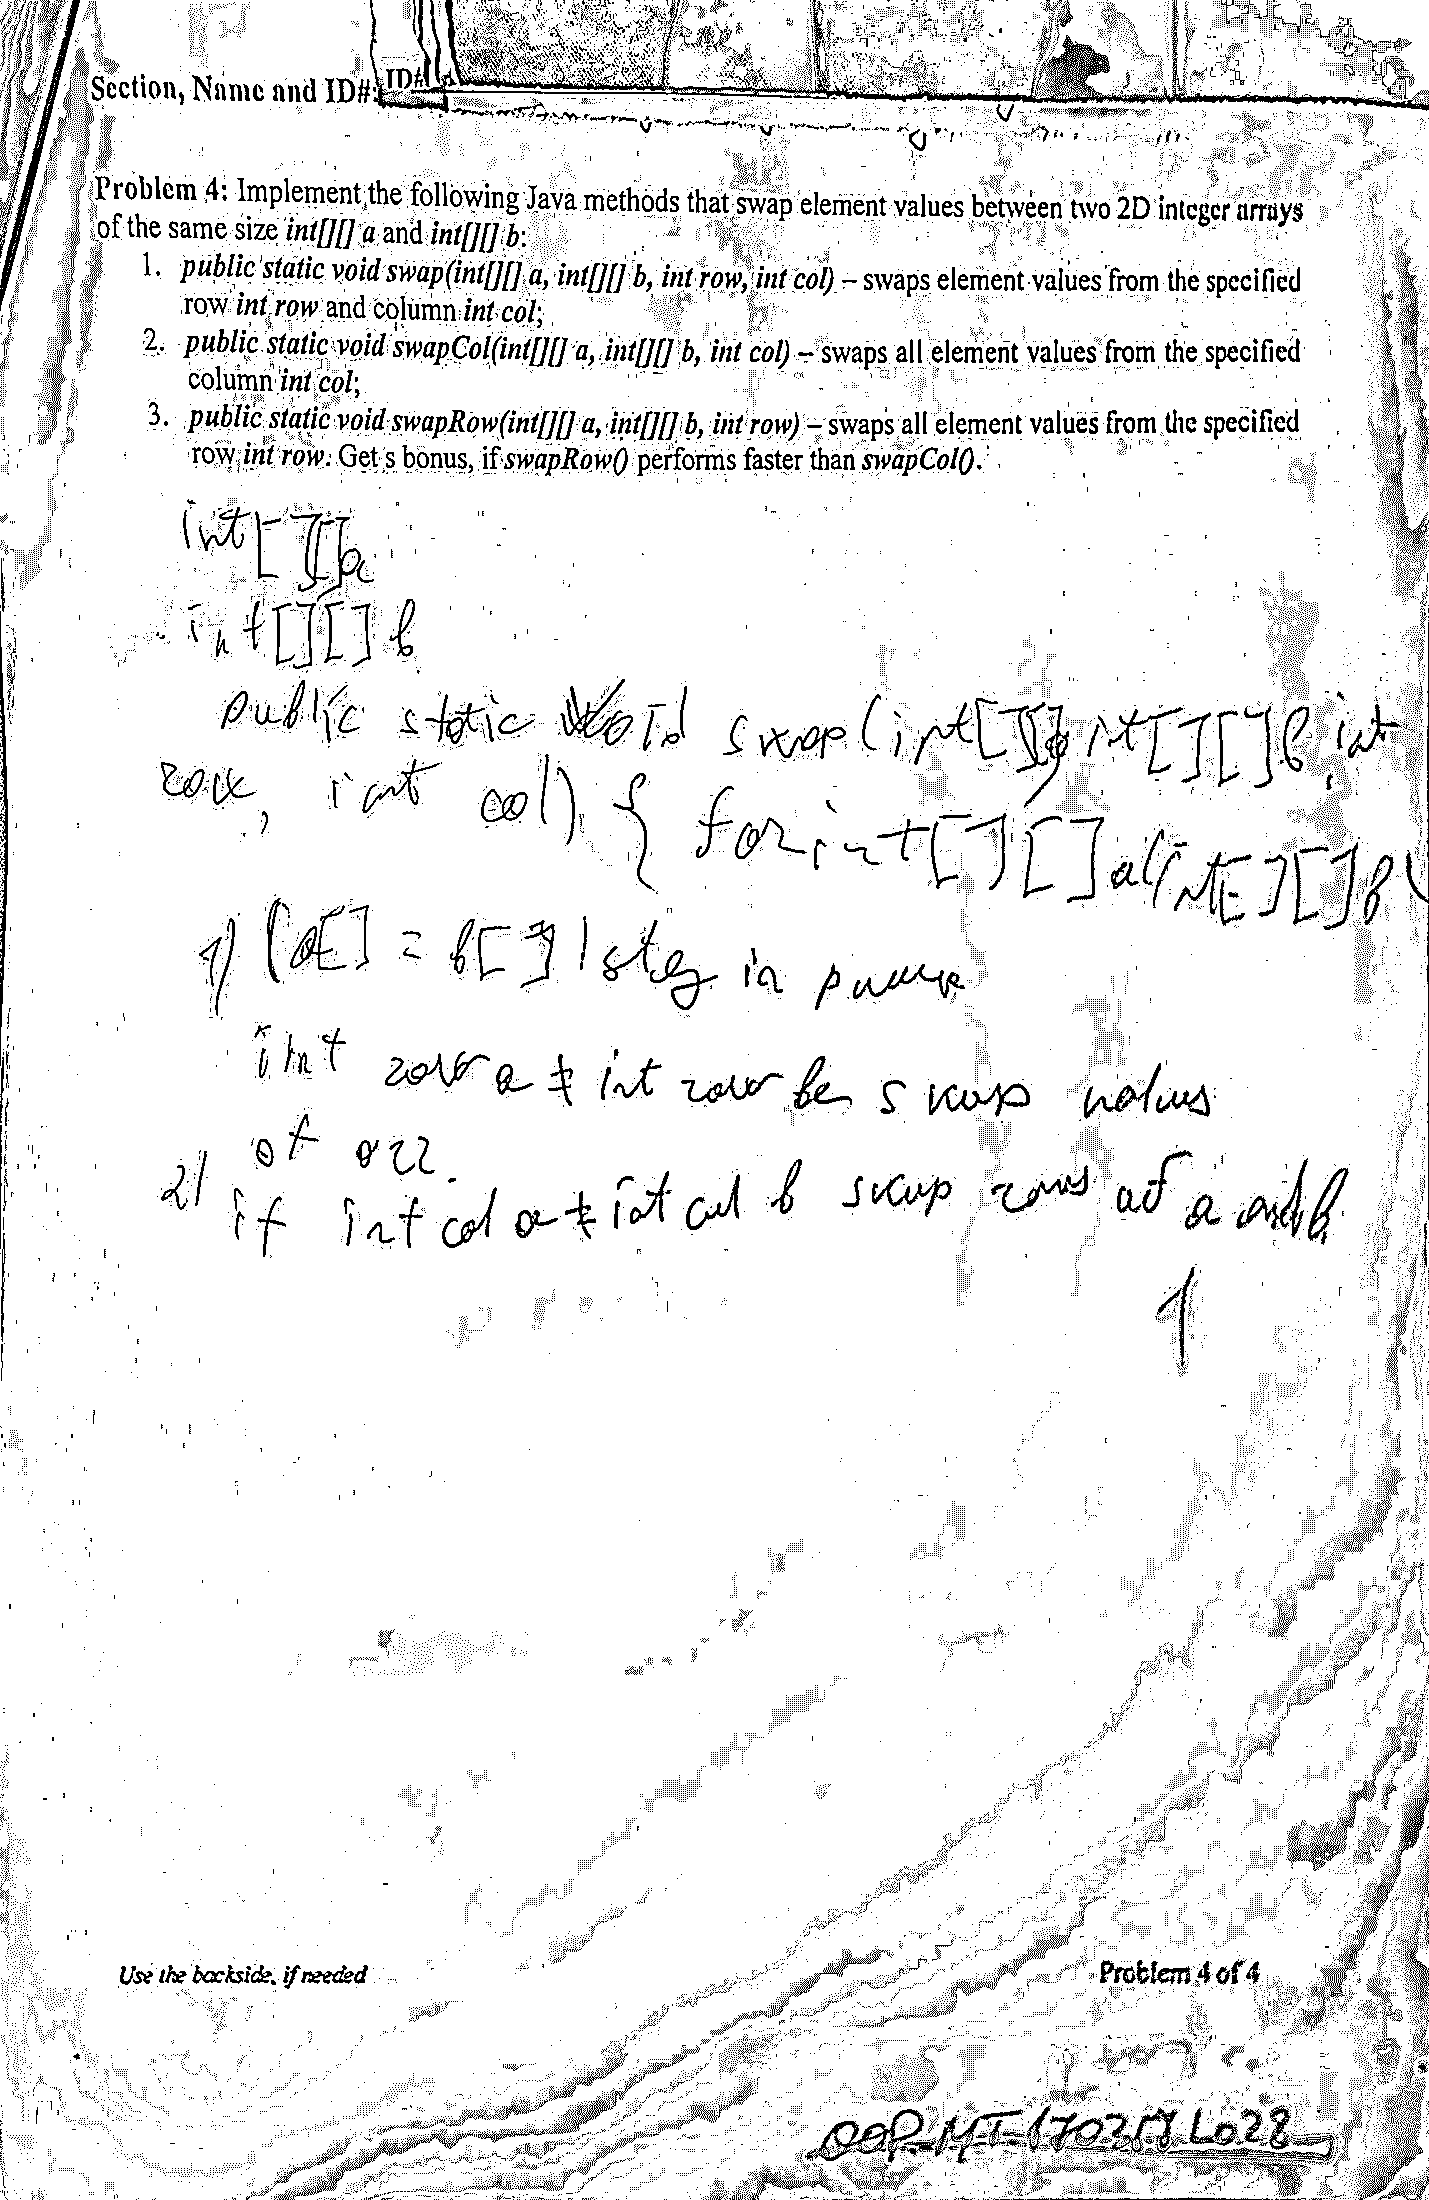 Section, Name and ID#: ID#
Problem 4: Implement the following Java methods that swap element values between two 2D integer arrays
of the same size int[][] a and int[][] b:
1. public static void swap(int[][] a, int[][] b, int row, int col) – swaps element values from the specified
row int row and column int col;
2. public static void swapCol(int[][] a, int[][] b, int col) – swaps all element values from the specified
column int col;
3. public static void swapRow(int[][] a, int[][] b, int row) – swaps all element values from the specified
row int row. Get s bonus, if swapRow() performs faster than swapCol().
int[][]a
int[][] b
public static void swap(int[][]a, int[][]b, int
row, int col) { for int[][]a(int[][]b
1) (a[] = b[] stey in
int row a ≠ int row b swap values
of arr.
2) if int col a ≠ int col b swap rows of a and b
1
Use the backside, if needed
Problem 4 of 4
OOP.MT.170318 L028